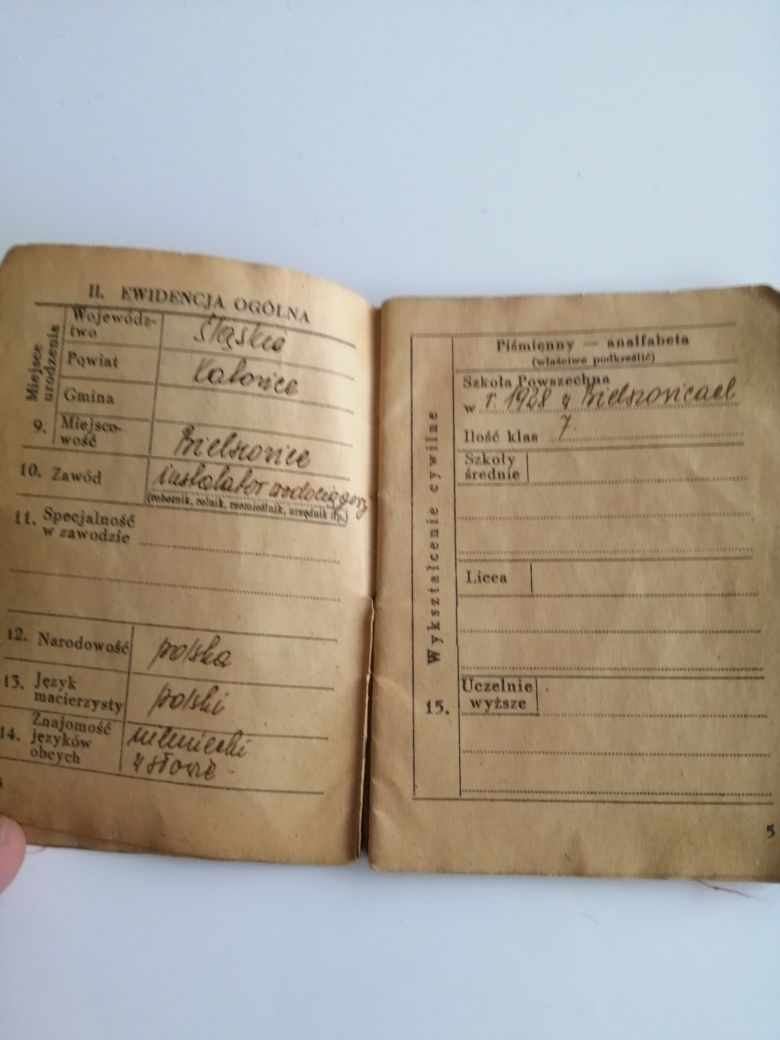 II. EWIDENCJA OGÓLNA
Miejsce urodzenia
Wojewódz-
two
śląskie
Powiat
Katowice
Gmina
9. Miejsco-
wość
Bielszowice
10. Zawód
instalator wodociągowy
(robotnik, rolnik, rzemieślnik, urzędnik itp.)
11. Specjalność
w zawodzie
12. Narodowość
polska
13. Język
macierzysty
polski
14. Znajomość
języków
obcych
niemiecki
w słowie
Wykształcenie cywilne
Piśmienny — analfabeta
(właściwe podkreślić)
Szkoła Powszechna
w r. 1928 w Bielszowicach
Ilość klas 7.
Szkoły
średnie
Licea
15. Uczelnie
wyższe
5